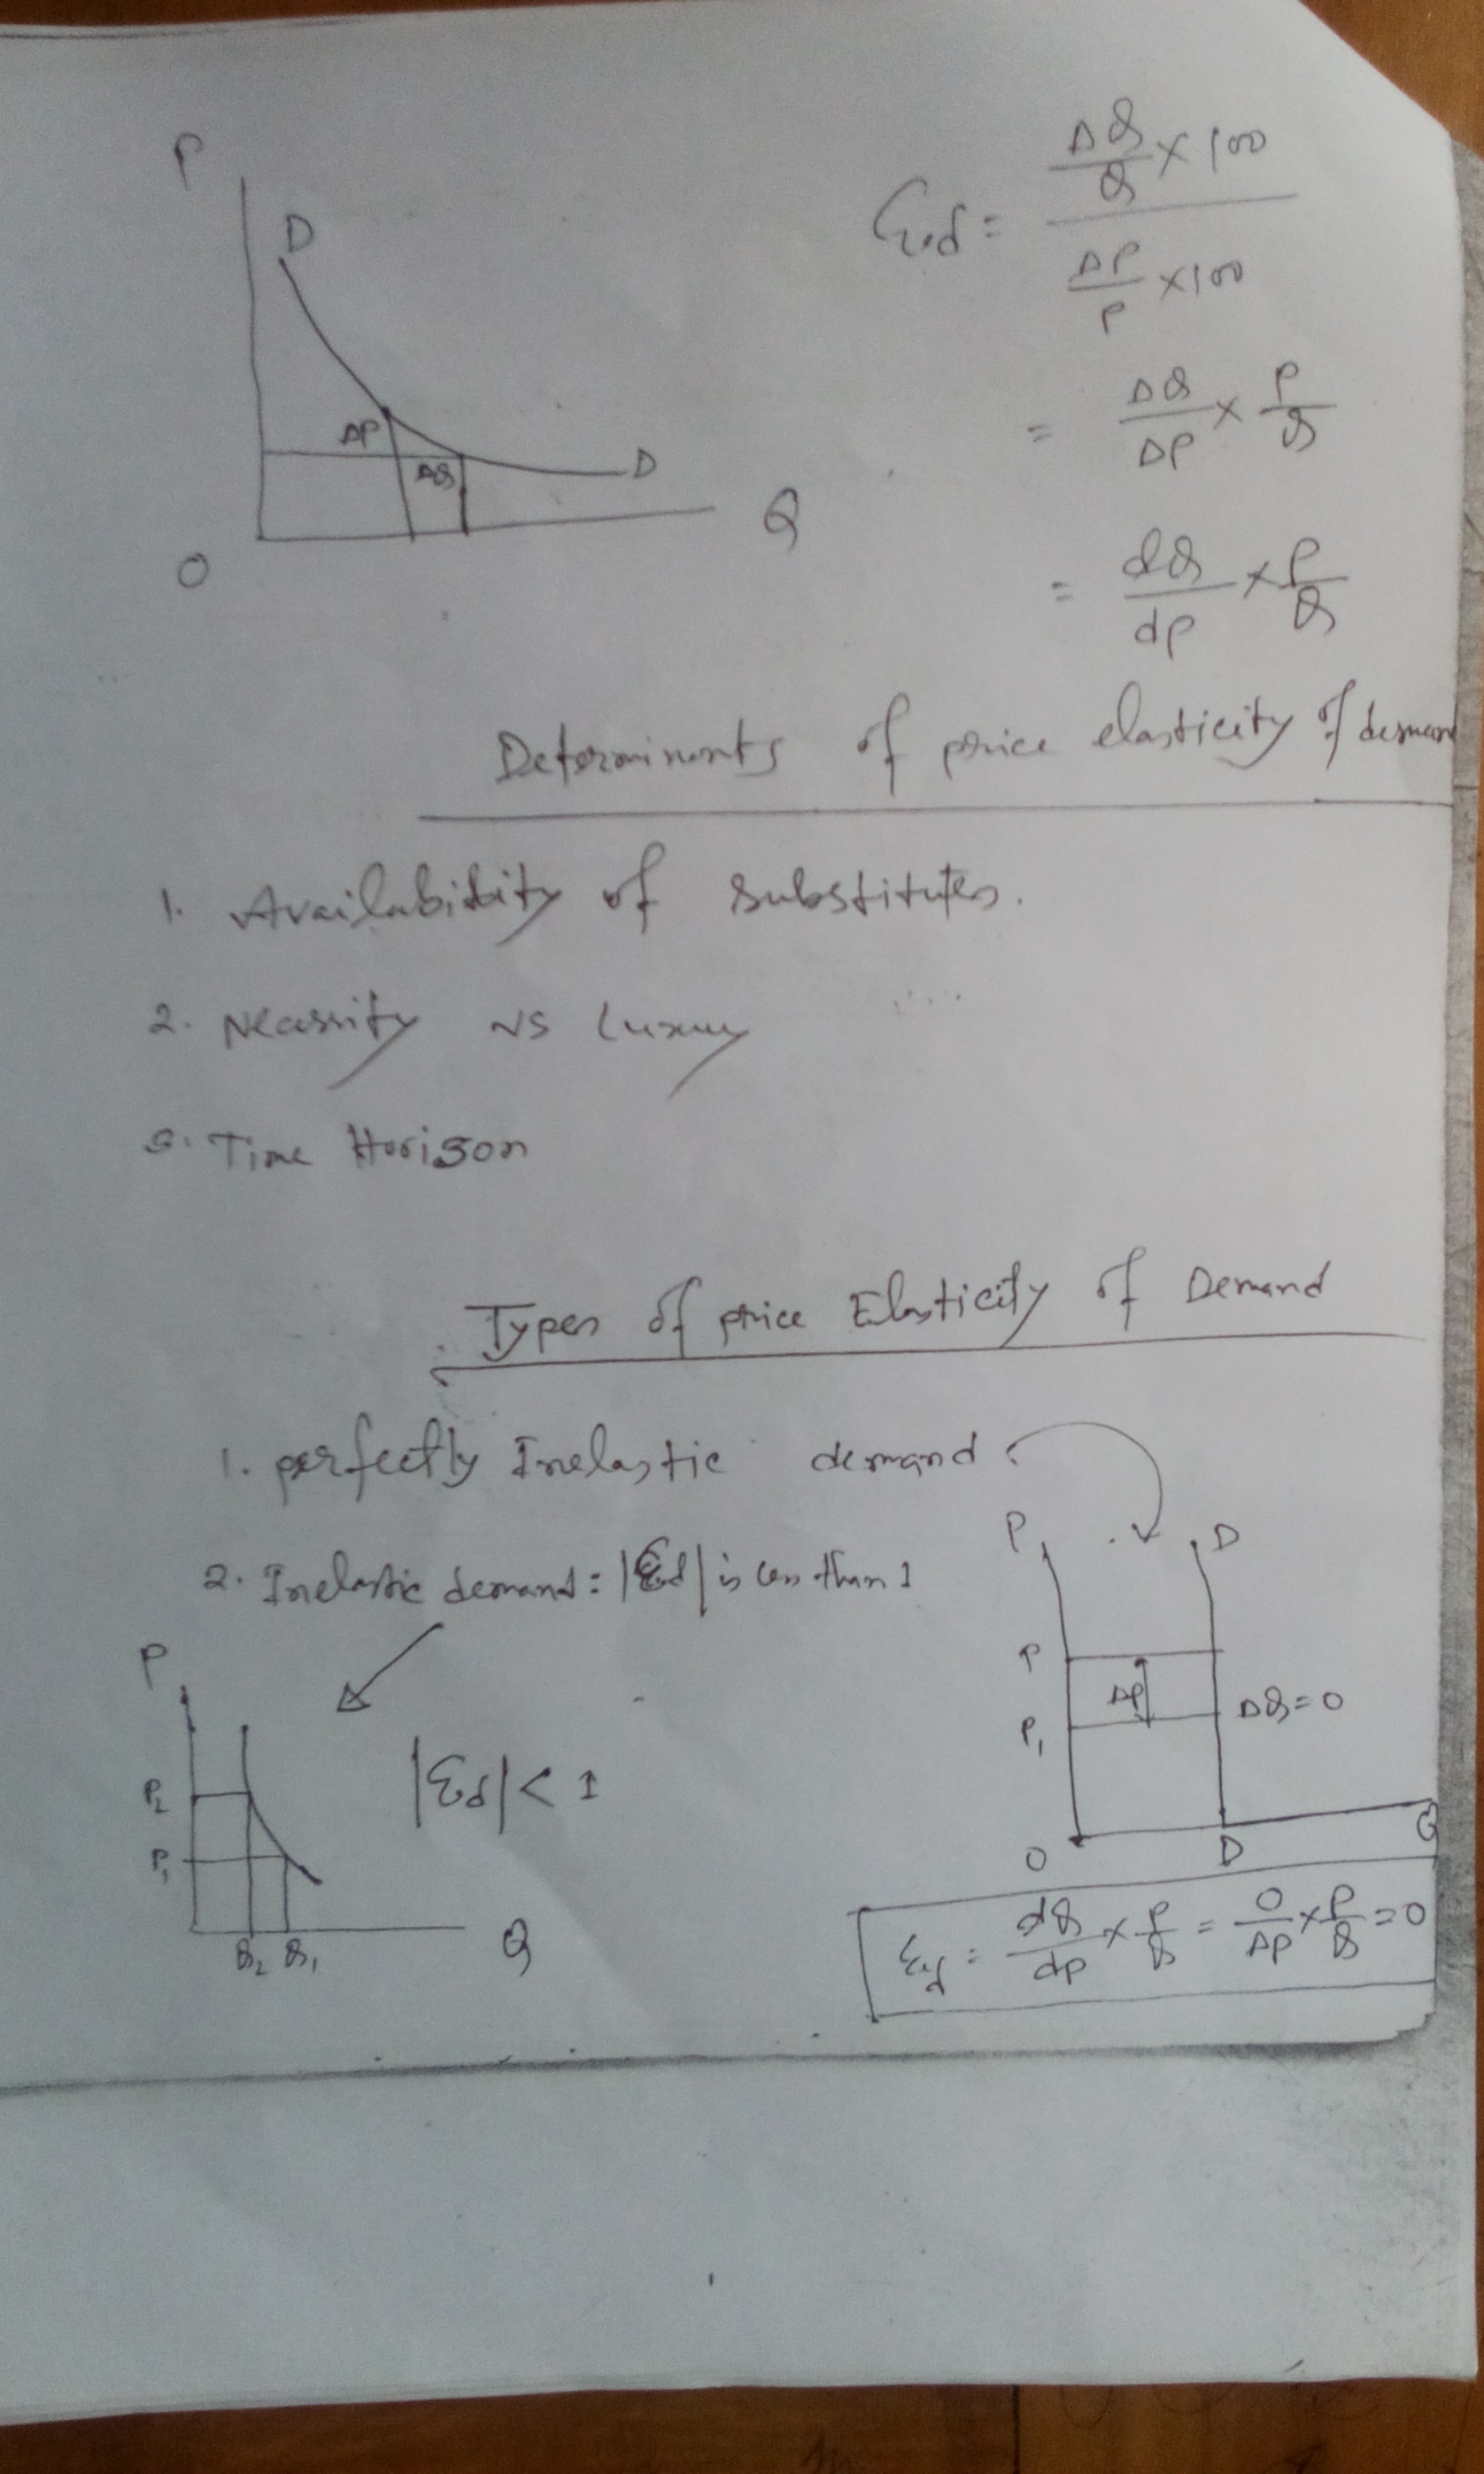 P
D
ΔP
ΔQ
D
Q
O
Ed = (ΔQ/Q × 100) / (ΔP/P × 100)
= ΔQ/ΔP × P/Q
= dQ/dP × P/Q
Determinants of price elasticity of deman
1. Availability of substitutes.
2. Necassity vs Luxury
3. Time Horison
Types of price Elasticity of Demand
1. perfectly Inelastic demand
2. Inelastic demand: |Ed| is less than 1
P
D
P
ΔP
P1
ΔQ=0
O
D
Q
Ed = dQ/dP × P/Q = 0/ΔP × P/Q = 0
P
P2
P1
|Ed| < 1
Q2 Q1
Q